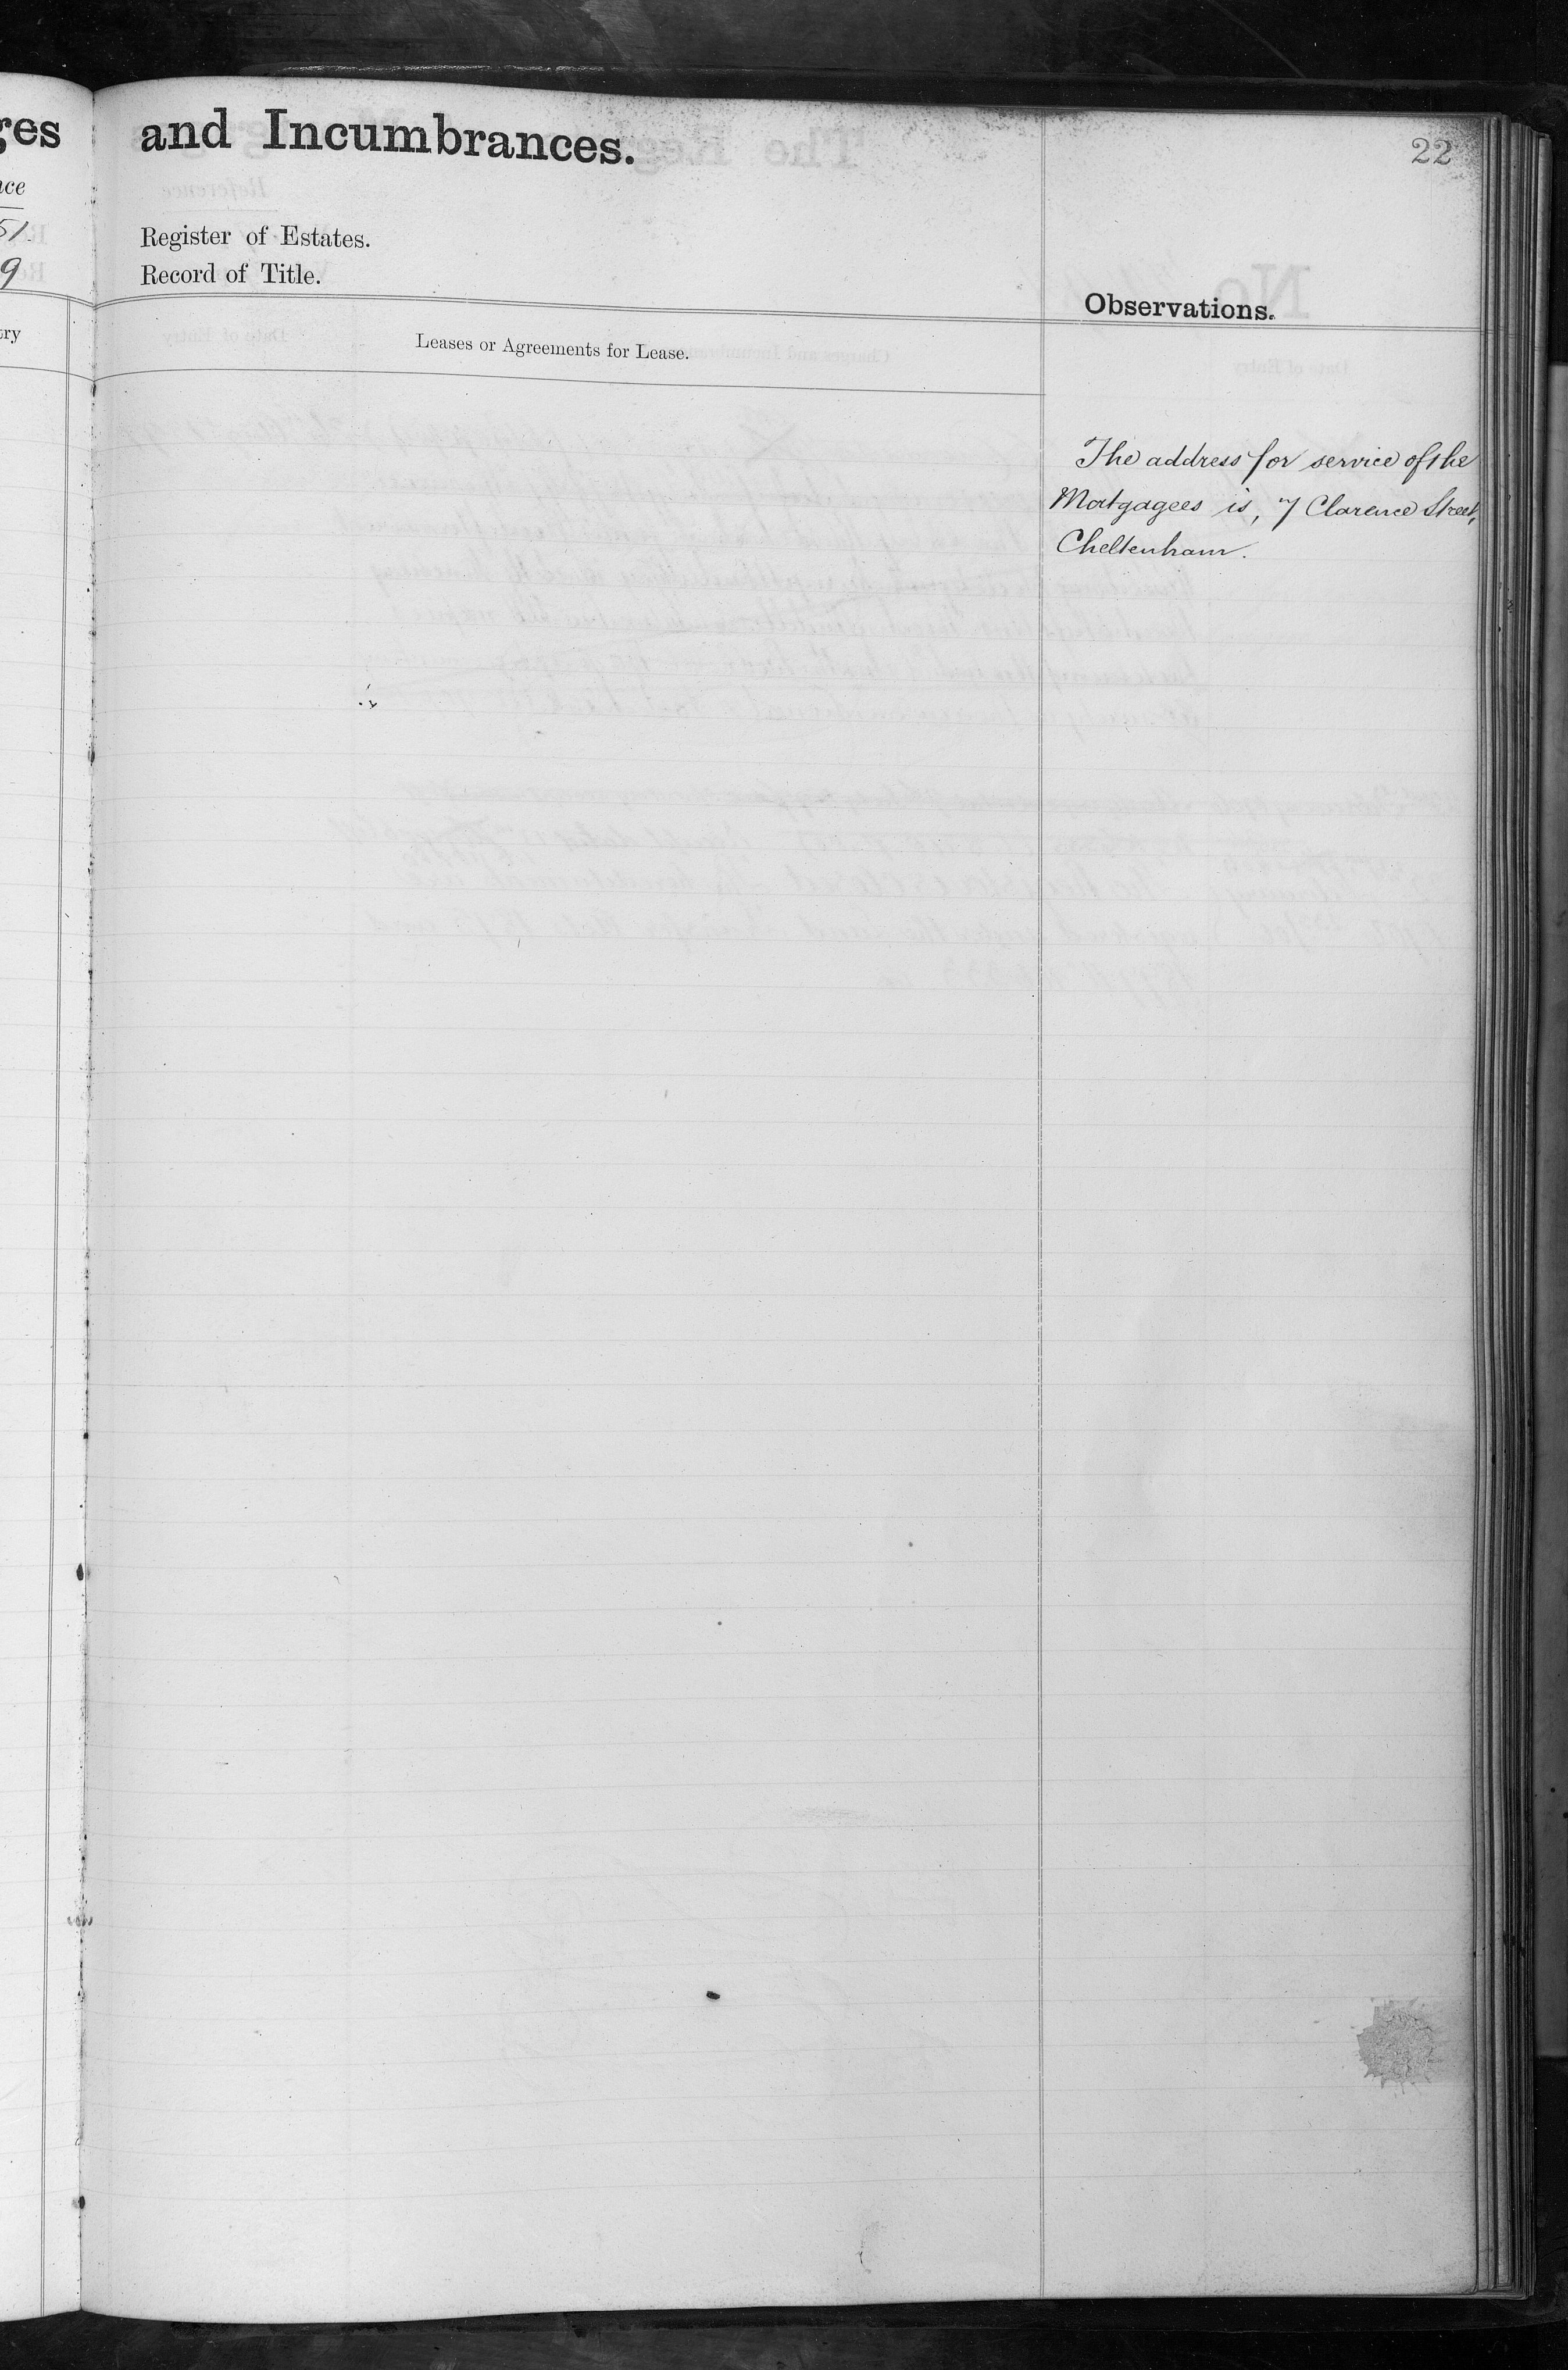 ges and Incumbrances.
22
nce
51
9
Register of Estates.
Record of Title.
Observations.
try
Leases or Agreements for Lease.
The address for service of the
Mortgagees is, 7 Clarence Street,
Cheltenham.